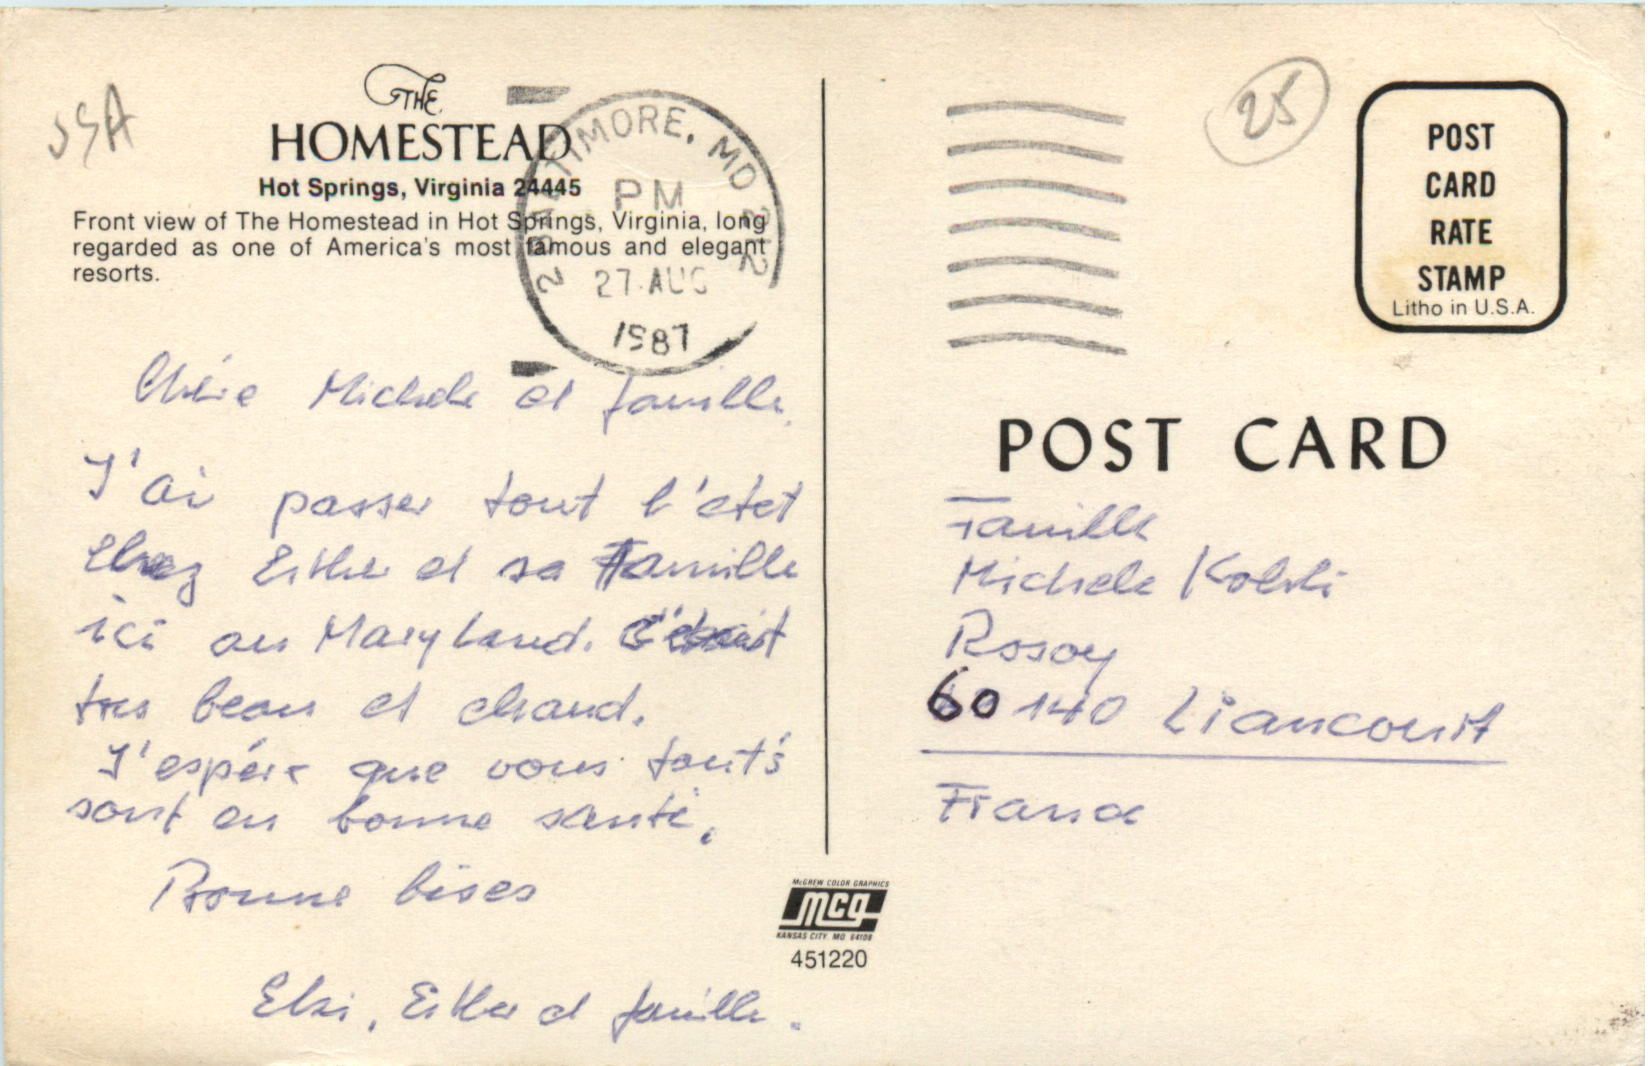 USA
THE
HOMESTEAD
Hot Springs, Virginia 24445
Front view of The Homestead in Hot Springs, Virginia, long
regarded as one of America's most famous and elegant
resorts.
BALTIMORE, MD 212
PM
27 AUG
1987
2
25
POST
CARD
RATE
STAMP
Litho in U.S.A.
Chère Michele et famille,
J'ai passer tout l'etet
Chez Esther et sa Famille
ici au Maryland. C'etait
tres beau et chaud.
J'espére que vous tout's
sont en bonne santé.
Bonne bises
Elsi, Esther et famille.
POST CARD
Famille
Michele
Rosoy
60140 Liancourt
France
McGREW COLOR GRAPHICS
mcg
KANSAS CITY, MO 64108
451220